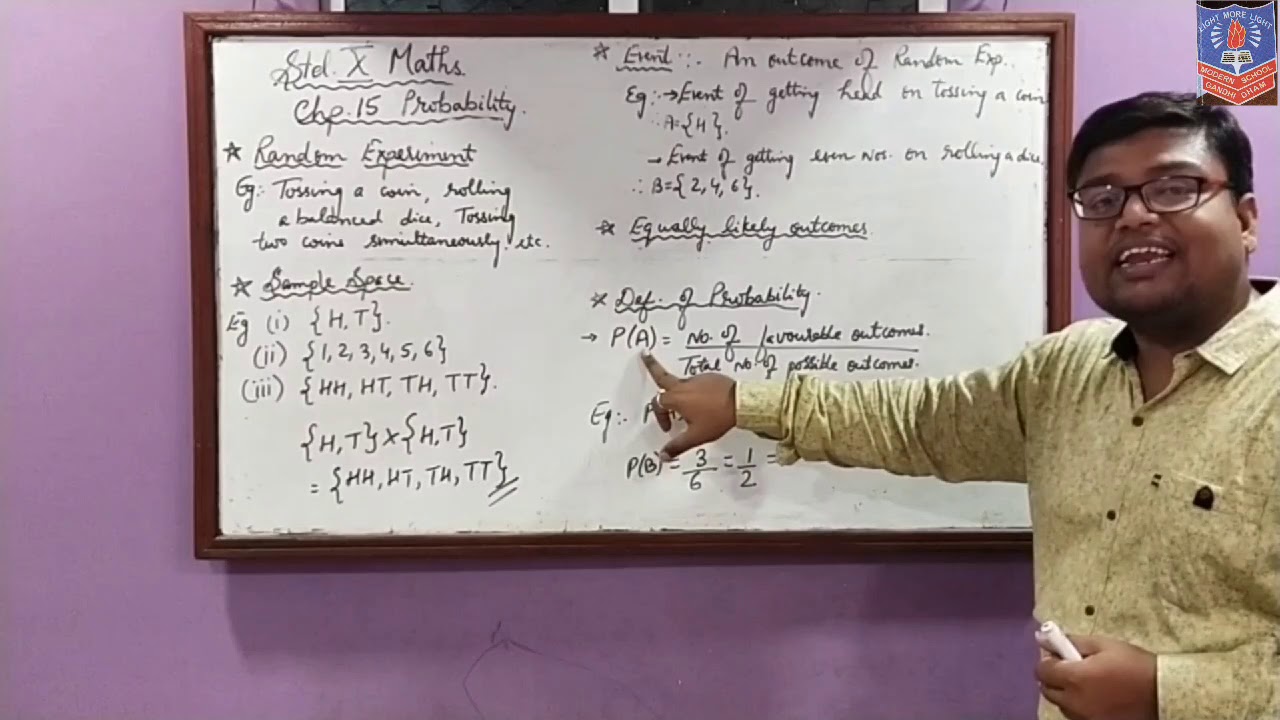 Std. X Maths
Chp. 15 Probability.
* Random Experiment
Eg:- Tossing a coin, rolling
a balanced dice, Tossing
two coins simultaneously. etc.
* Sample Space.
Eg (i) {H, T}.
(ii) {1, 2, 3, 4, 5, 6}
(iii) {HH, HT, TH, TT}.
{H, T} X {H, T}
= {HH, HT, TH, TT}
* Event :- An outcome of Random Exp..
Eg :- → Event of getting head on Tossing a coin
∴ A = {H}.
→ Event of getting even Nos. on rolling a dice.
∴ B = {2, 4, 6}.
* Equally likely outcomes.
* Def. of Probability.
→ P(A) = No. of favourable outcomes.
Total No. of possible outcomes.
Eg :-
P(B) = 3/6 = 1/2 =
LIGHT MORE LIGHT
MODERN SCHOOL
GANDHIDHAM